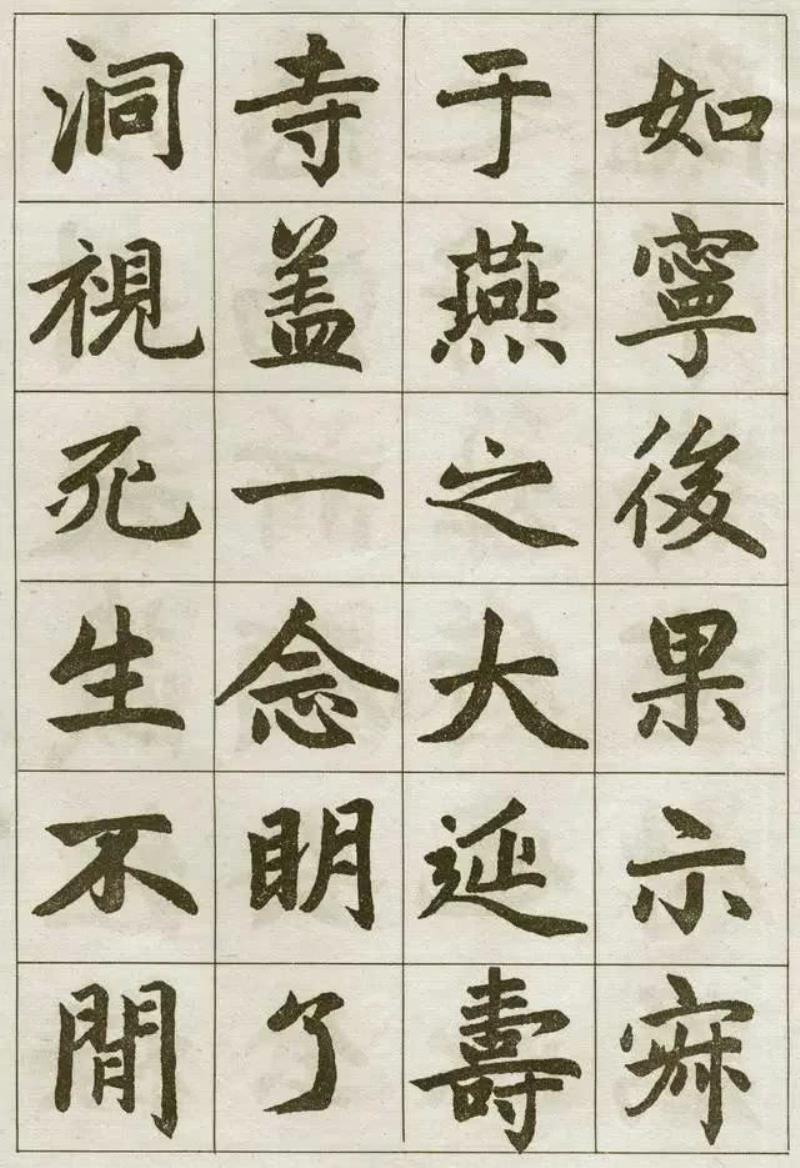 如寧後果示㝛
于燕之大延壽
寺盖一念明了
洞視死生不間